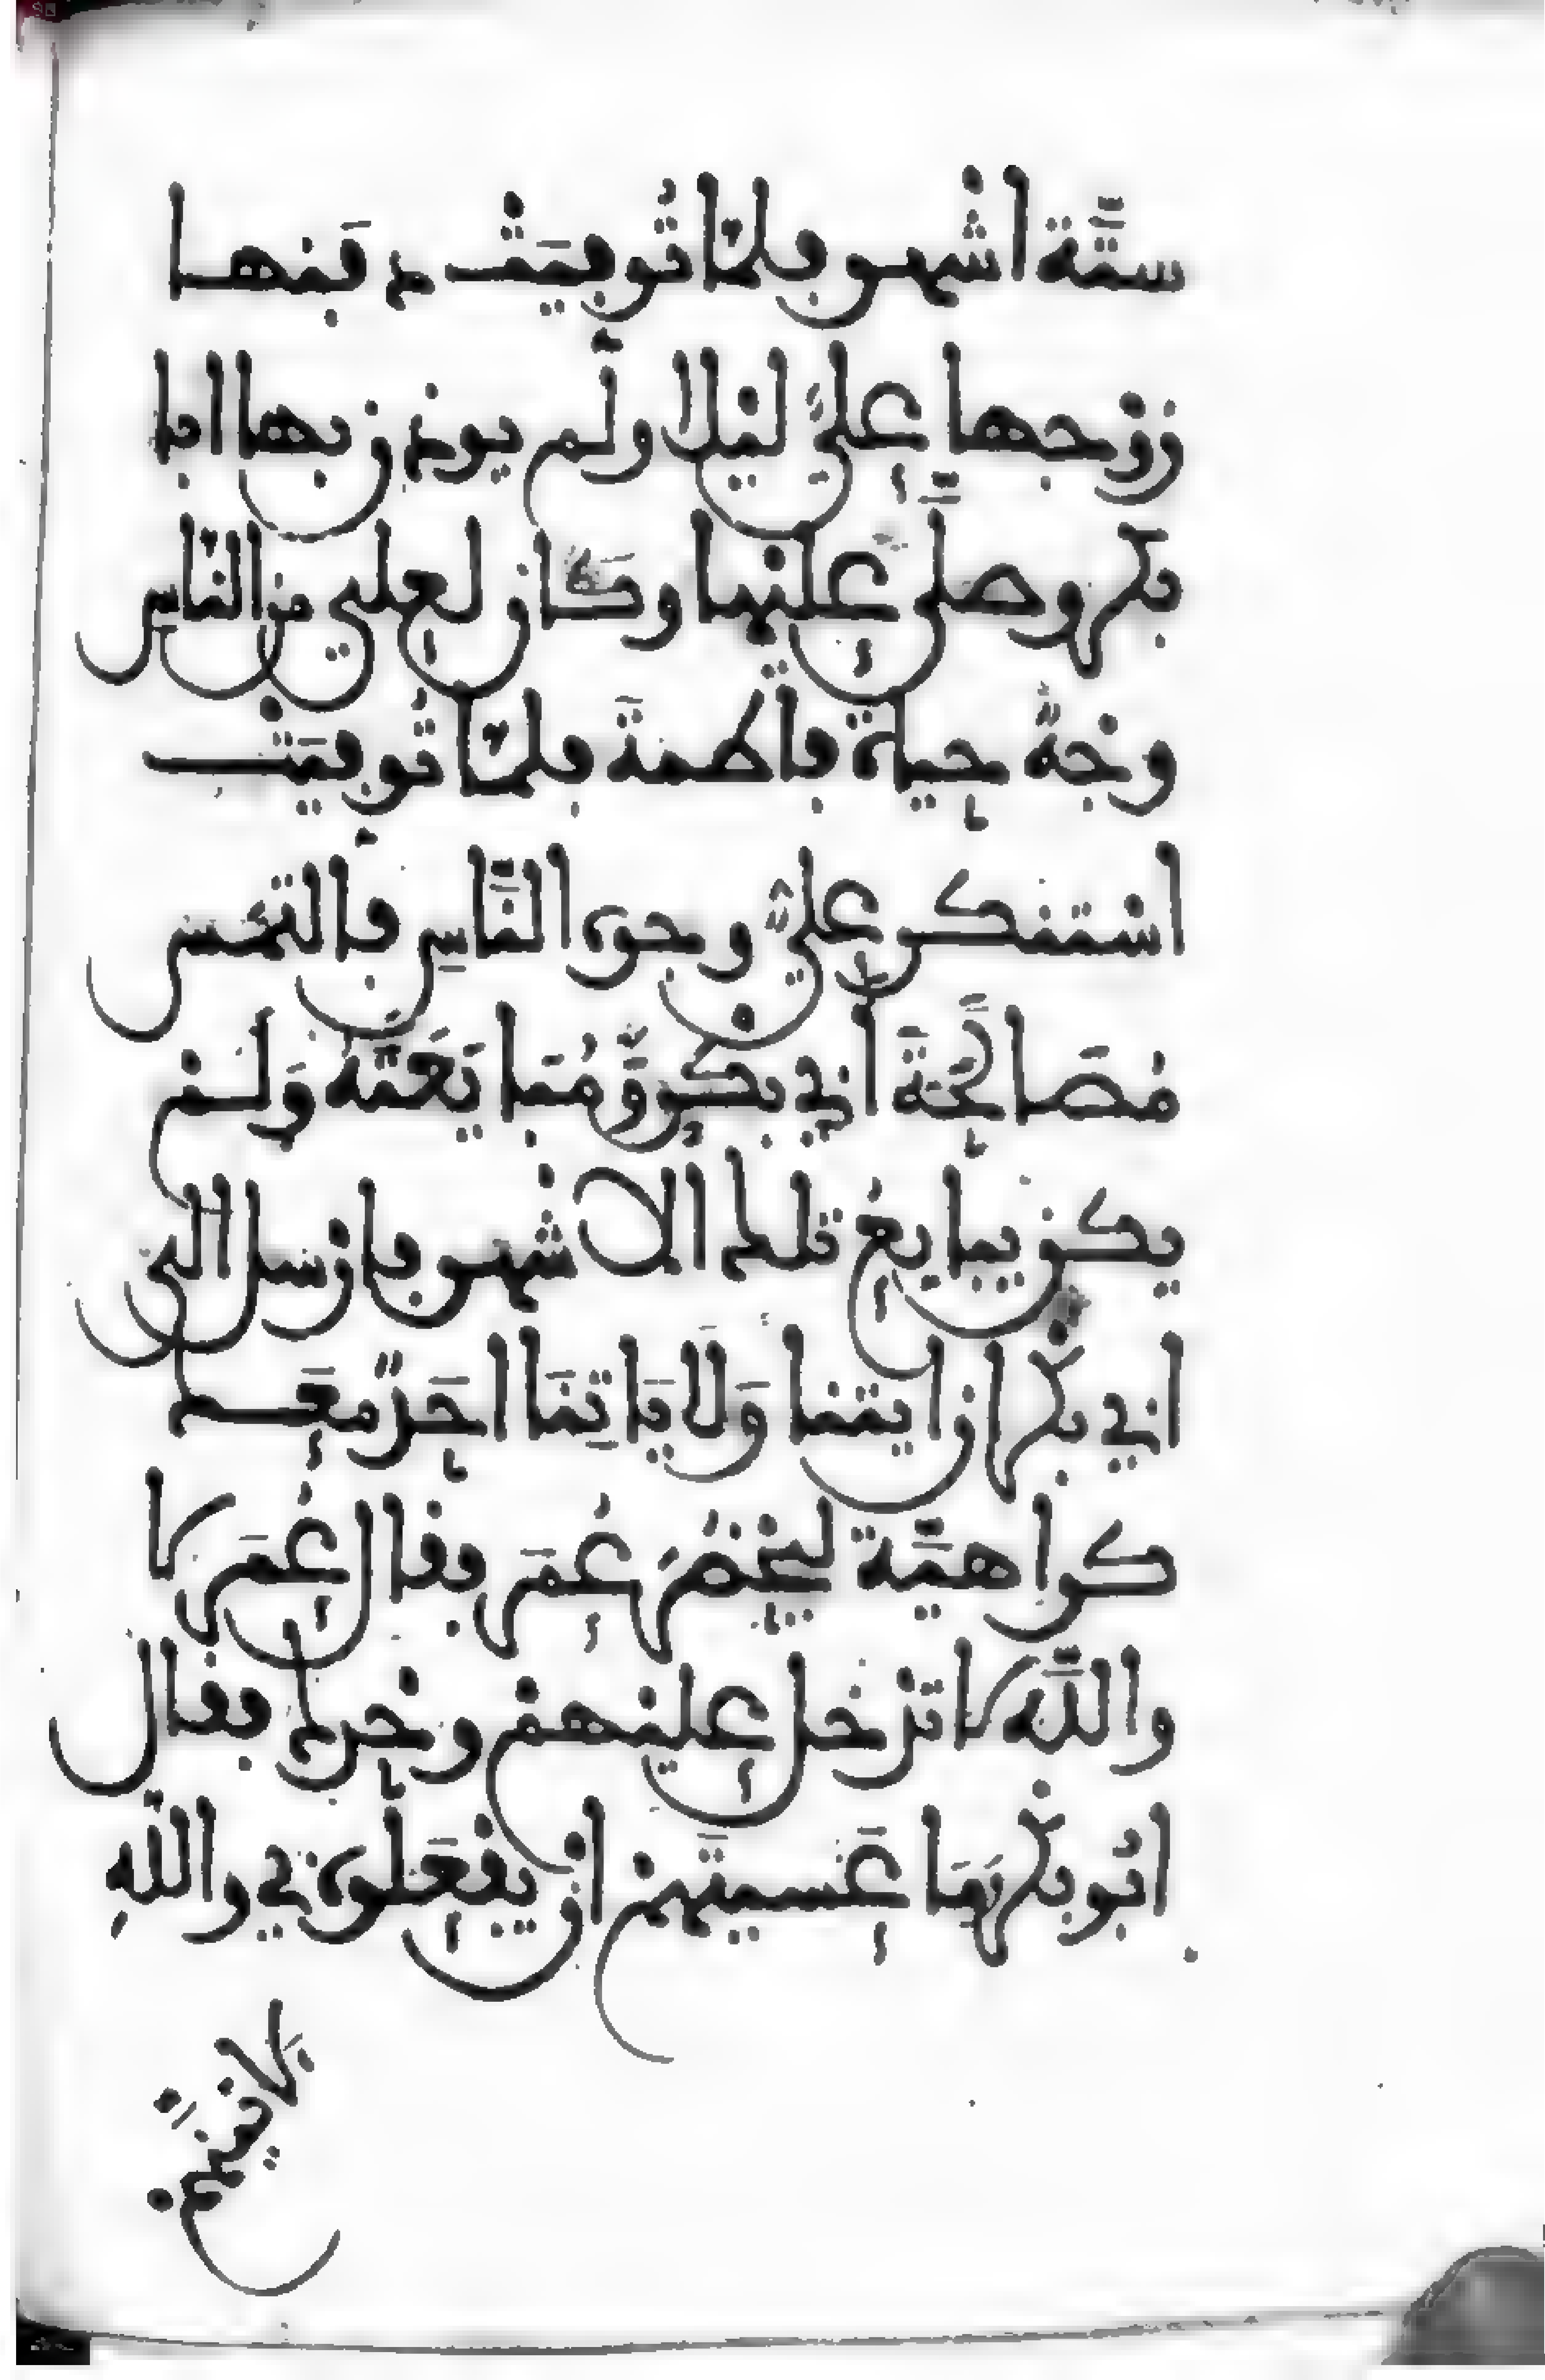 ستَّة اشْهر فلمّا تُوفيَتْ دفنها
زوْجها عليّ ليْلا ولَم يوذن بها ابا
بكر وصلَّى عليْها وكَان لعلي من النّاس
وجْهٌ حياة فاطمةَ فلمّا تُوفيَتْ
اسْتنكر عليٌّ وجوه النَّاسِ فالتمَس
مُصَالَحَةَ أبي بكرٍ وَّمُبَايَعَتَهُ وَلمْ
يكنْ يبايعُ تلك الاشْهر فارْسل الى
ابي بكْر ان ايتنا وَلَا يَاتِنَا احَدٌ مّعَك
كراهيَّة ليحْضُرَ عُمَرَ فقال عُمَر لا
والله لا تدْخل عليْهمْ وحْدك فقال
ابُو بكْر وَمَا عَسيتَهمْ انْ يفْعَلوه بي والله
لاتينَّهمْ